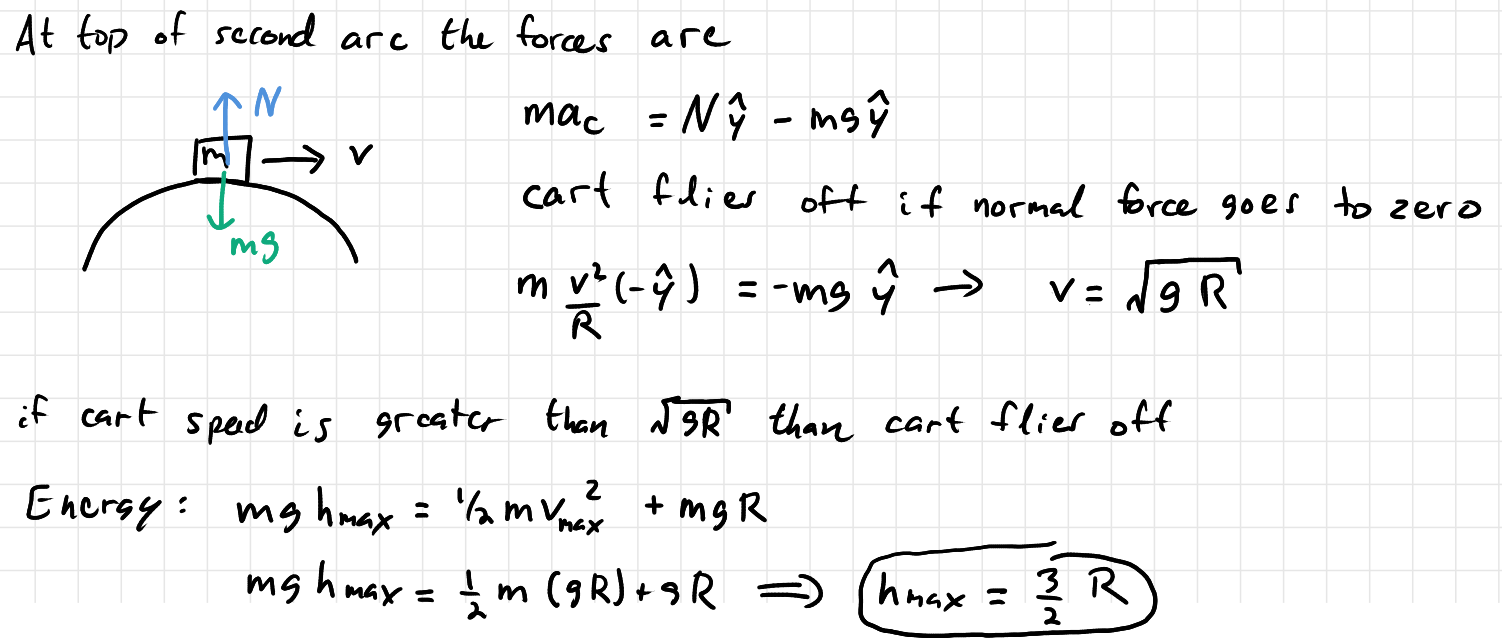 At top of second arc the forces are
N
m → v
mg
ma_c = Nŷ - mgŷ
cart flies off if normal force goes to zero
m v²/R (-ŷ) = -mg ŷ → v = √(gR)
if cart sped is greater than √(gR) than cart flies off
Energy: mg h_max = 1/2 m v_max² + mgR
mg h_max = 1/2 m (gR) + gR ⟹ h_max = 3/2 R